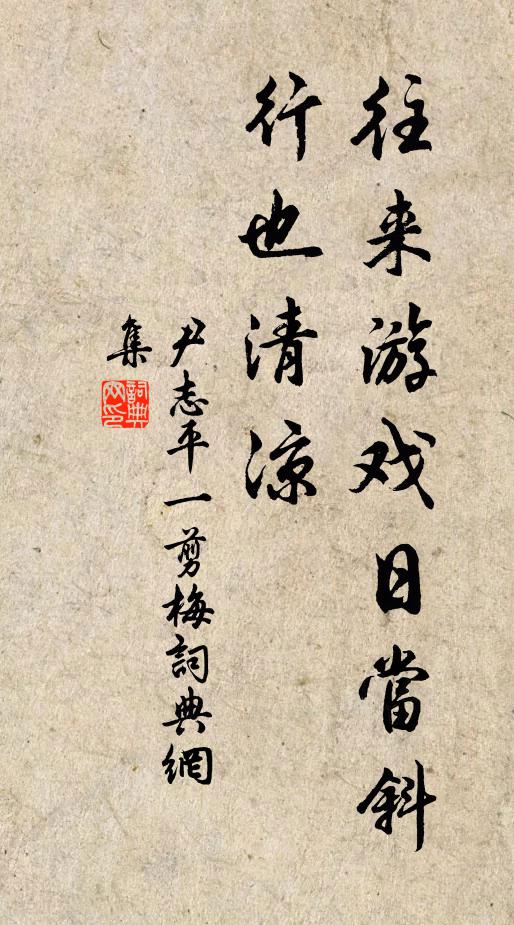 往来游戏日當斜
行也清凉
尹志平一剪梅詞典網
集
詞典
网印